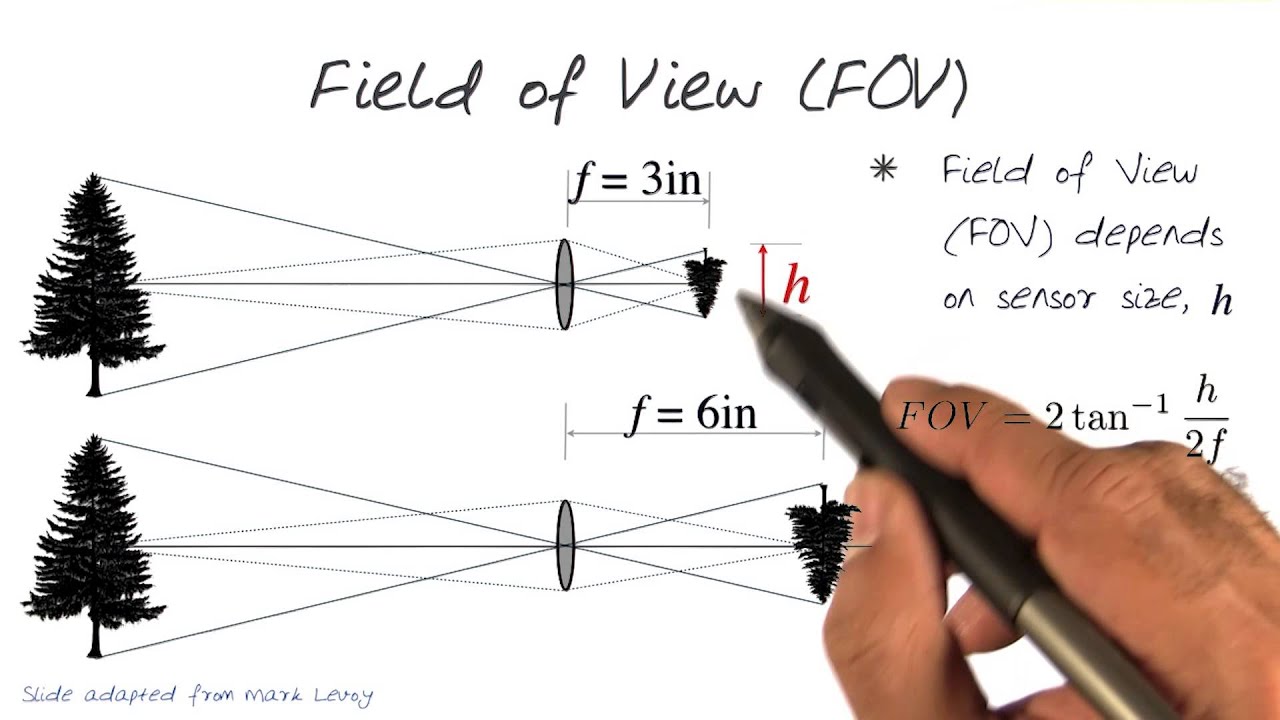 Field of View (FOV)
f = 3in
h
f = 6in
* Field of View
(FOV) depends
on sensor size, h
FOV = 2 tan⁻¹ h/2f
Slide adapted from Mark Levoy